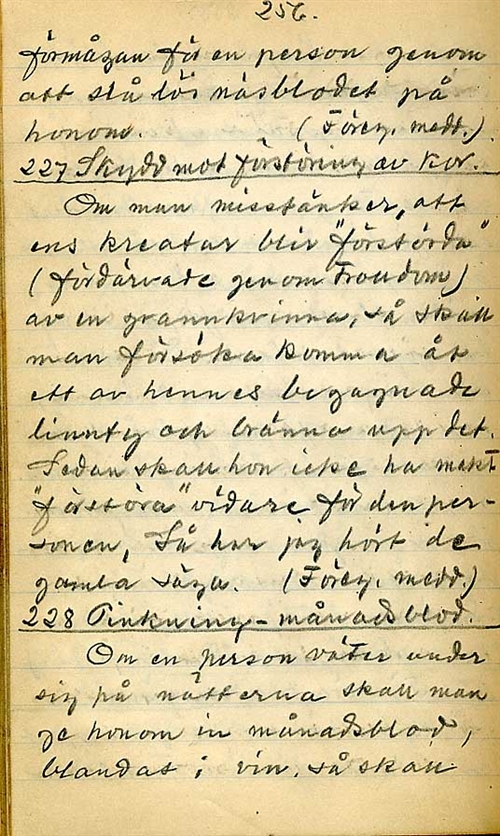 256.
förmågan för en person genom
att slå lös näsblodet på
honom. (Föreg. medd.)
227 Skydd mot förstöring av kor.
Om man misstänker, att
ens kreatur blir "förstörda"
(fördärvade genom Trolldom)
av en grannkvinna, så skall
man försöka komma åt
ett av hennes begagnade
linnetyg och bränna upp det.
Sedan skall hon icke ha makt
"förstöra" vidare för den per-
sonen, Så har jag hört de
gamla säga. (Föreg. medd.)
228 Pinkning - månadsblod.
Om en person väter under
sig på nätterna skall man
ge honom in månadsblod,
blandat i vin, så skall